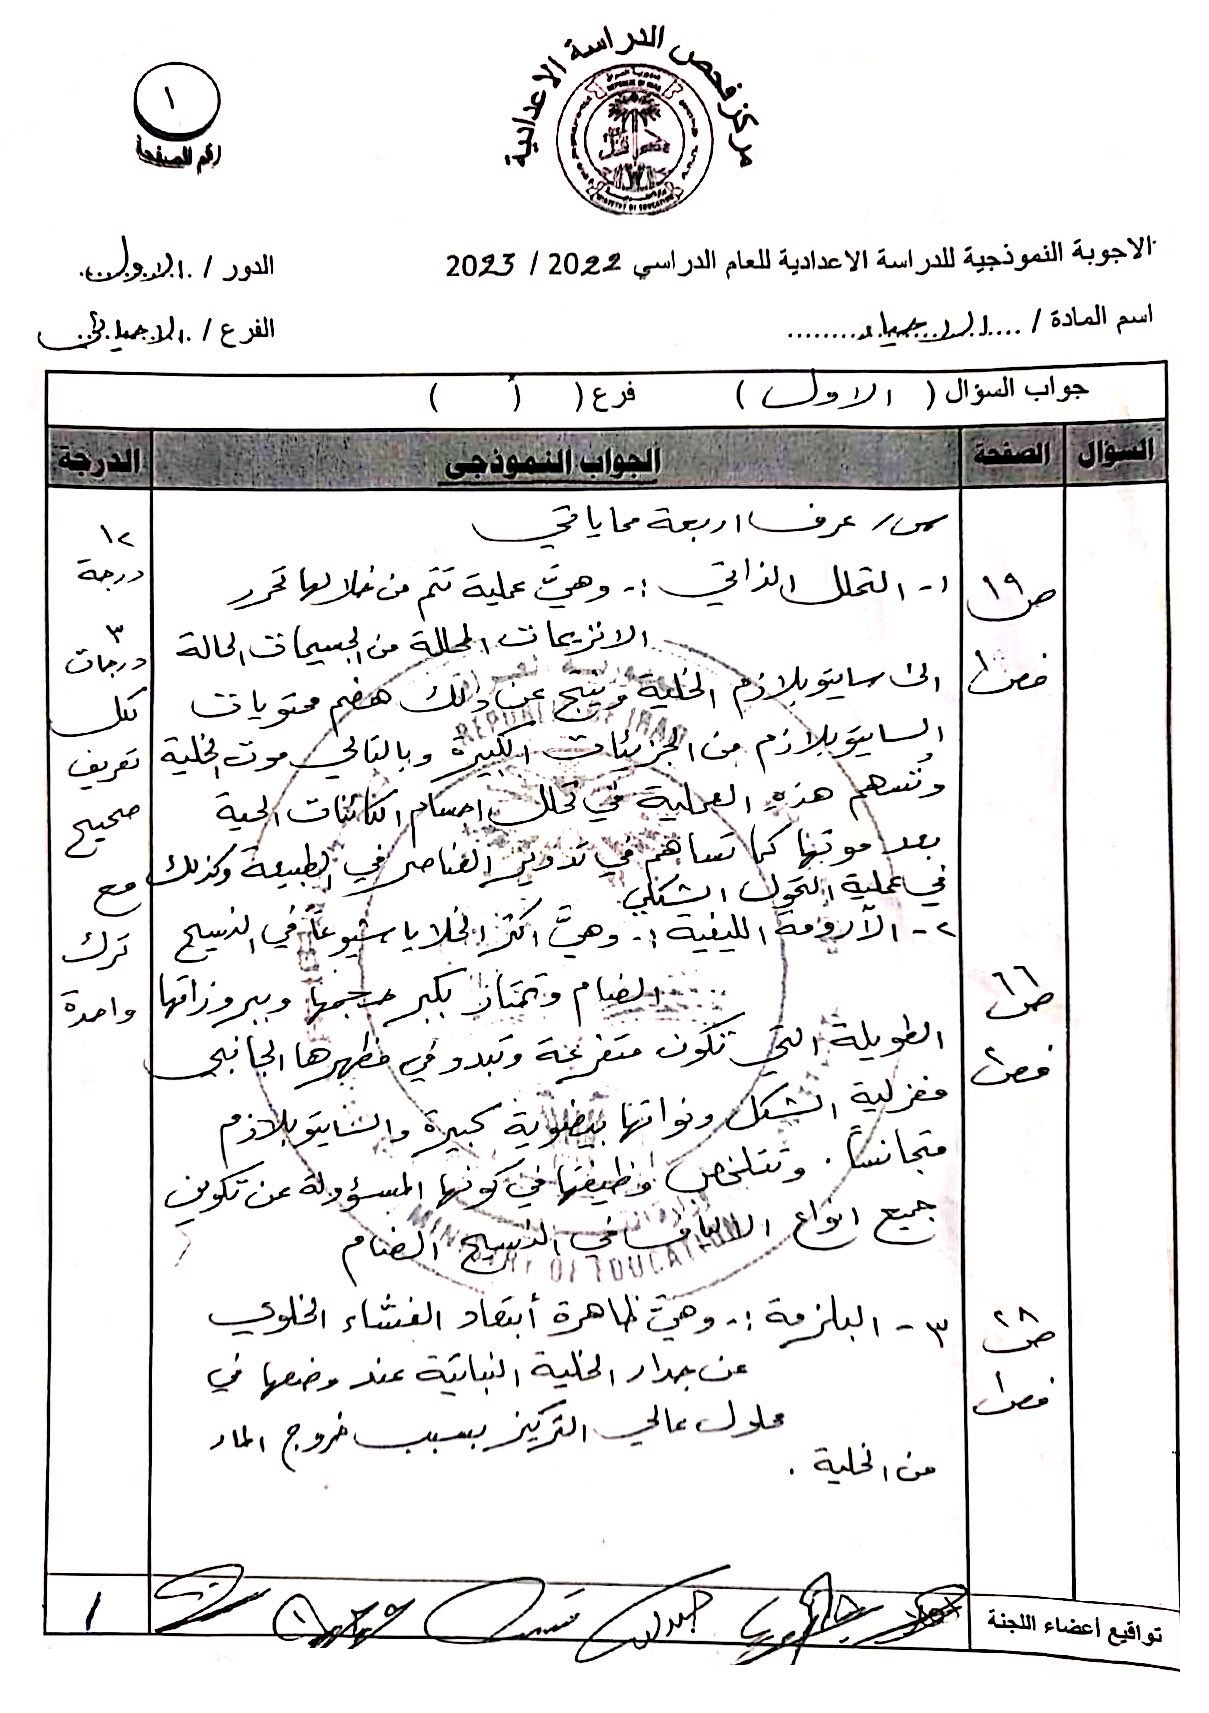 مركز فحص الدراسة الاعدادية
١
رقم الصفحة
الاجوبة النموذجية للدراسة الاعدادية للعام الدراسي 2022 / 2023
الدور / الاول
اسم المادة / الاحياء
الفرع / الاحيائي
جواب السؤال ( الاول ) فرع ( أ )
السؤال الصفحة الجواب النموذجي الدرجة
س/ عرف اربعة مما يأتي
١٢ درجة
٣ درجات لكل تعريف صحيح مع ترك واحدة
ص١٩ فصل١
١- التحلل الذاتي :- وهيَ عملية تتم من خلالها تحرر
الانزيمات المحللة من الجسيمات الحالة
الى سايتوبلازم الخلية وينتج عن ذلك هضم محتويات
السايتوبلازم من الجزيئات الكبيرة وبالتالي موت الخلية
وتُسهم هذهِ العملية في تحلل اجسام الكائنات الحية
بعد موتها كما تساهم في تدوير العناصر في الطبيعة وكذلك
في عملية التحول الشكلي.
ص٦٦ فصل٢
٢- الأرومة الليفية :- وهيَ اكثر الخلايا شيوعاً في النسيج
الضام وتمتاز بكبر حجمها وببروزاتها
الطويلة التي تكون متفرعة وتبدو في مظهرها الجانبي
مغزلية الشكل ونواتها بيضوية كبيرة والسايتوبلازم
متجانساً . وتتلخص وظيفتها في كونها المسؤولة عن تكوين
جميع انواع الالياف في النسيج الضام
ص٢٨ فصل١
٣- البلزمة :- وهيَ ظاهرة أبتعاد الغشاء الخلوي
عن جدار الخلية النباتية عند وضعها في
محلول عالي التركيز بسبب خروج الماء
من الخلية .
تواقيع أعضاء اللجنة
١
REPUBLIC OF IRAQ
MINISTRY OF EDUCATION